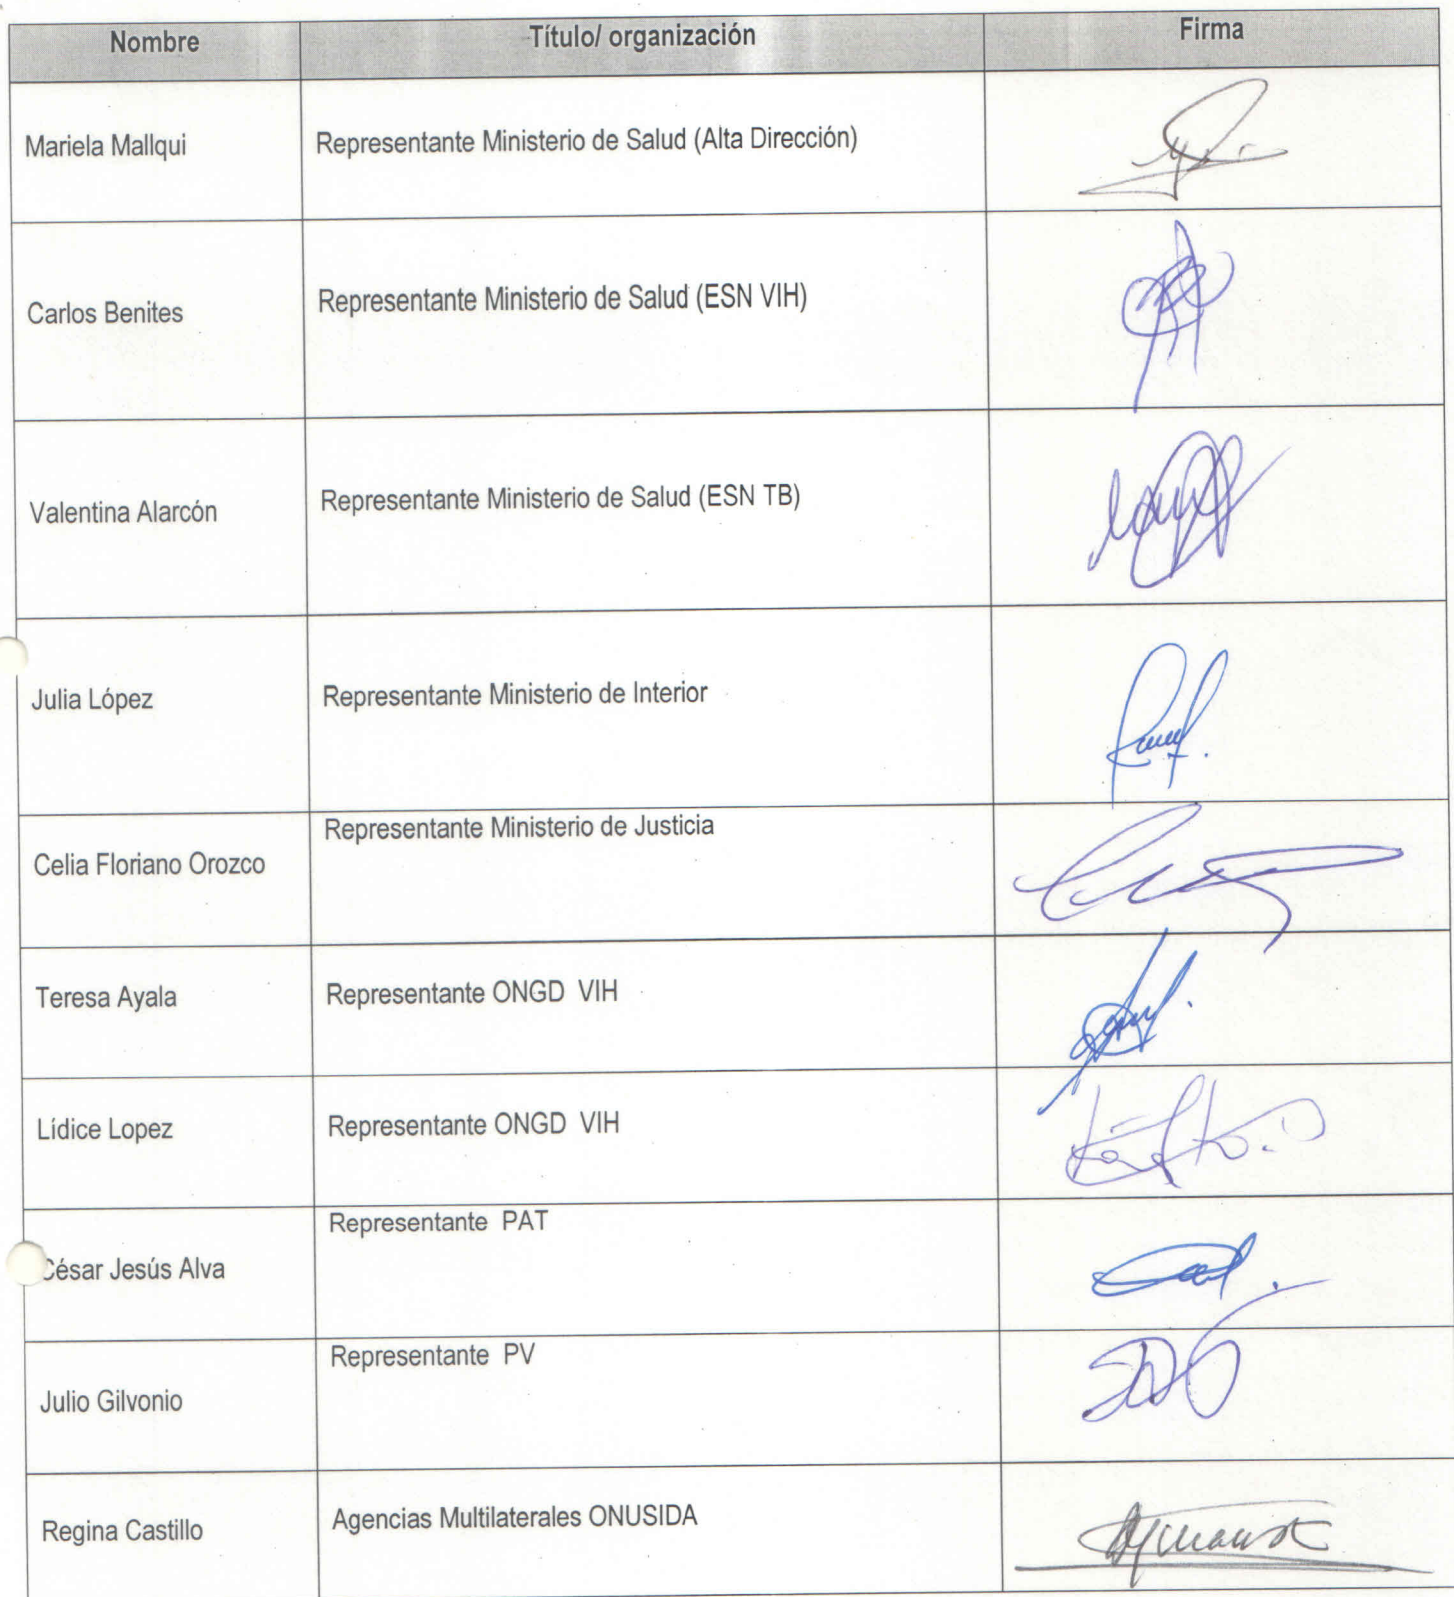 Nombre Título/ organización Firma
Mariela Mallqui Representante Ministerio de Salud (Alta Dirección)
Carlos Benites Representante Ministerio de Salud (ESN VIH)
Valentina Alarcón Representante Ministerio de Salud (ESN TB)
Julia López Representante Ministerio de Interior
Celia Floriano Orozco Representante Ministerio de Justicia
Teresa Ayala Representante ONGD VIH
Lídice Lopez Representante ONGD VIH
César Jesús Alva Representante PAT
Julio Gilvonio Representante PV
Regina Castillo Agencias Multilaterales ONUSIDA